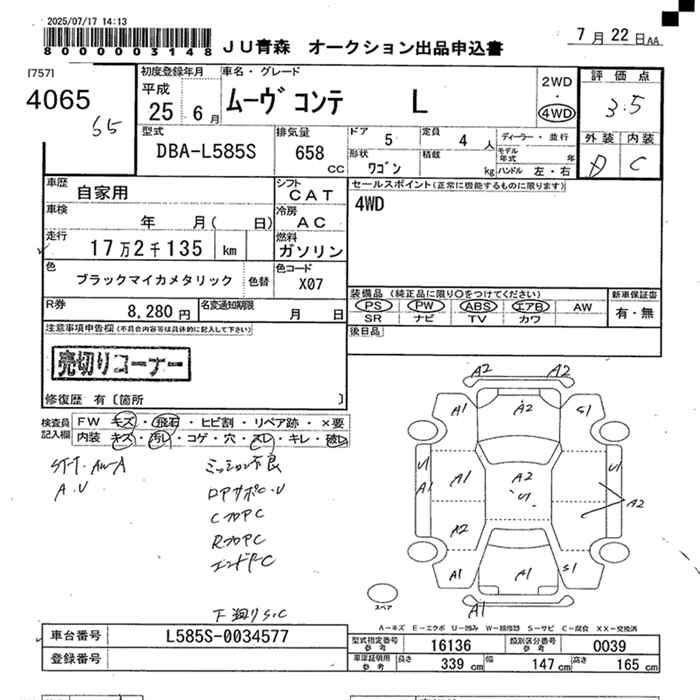 2025/07/17 14:13
8000003148
JU青森 オークション出品申込書
7月22日AA
[757]
4065
65
初度登録年月
平成
25 6月
車名・グレード
ムーヴ コンテ L
2WD
・
4WD
評価点
3.5
外装 内装
D C
型式
DBA-L585S
排気量
658
CC
ドア
5
定員
4人
ディーラー・並行
形状
ワゴン
積載
kg
モデル年式 年
ハンドル 左・右
車歴
自家用
シフト
CAT
セールスポイント(正常に機能するものに限ります)
4WD
車検
年 月( 日)
冷房
AC
走行
17万2千135 km
燃料
ガソリン
色
ブラックマイカメタリック
色替
色コード
X07
R券
8,280円
名変通知期限
月 日
装備品 (純正品に限り○をつけてください)
PS PW ABS エアB AW
SR ナビ TV カワ
新車保証書
有・無
後日品
注意事項申告欄(不具合内容等は具体的に記入して下さい)
売切りコーナー
修復歴 有〔箇所 〕
検査員記入欄
FW キズ・飛石・ヒビ割・リペア跡・×要
内装 キズ・汚レ・コゲ・穴・スレ・キレ・破レ
A.U
ミッション不良
CフロアC
RフロアC
下廻りS.C
A2 A2
A1 A2 S1
U1 A1 A1 A2 U1 U1
A2 A2
A1 A1 S1
A1
スペア
A−キズ E−エクボ U−凹み W−補修跡 S−サビ C−腐食 XX−交換済
車台番号
L585S-0034577
登録番号
型式指定番号 参考
16136
類別区分番号 参考
0039
車庫証明用 参考
長さ 339 cm
幅 147 cm
高さ 165 cm